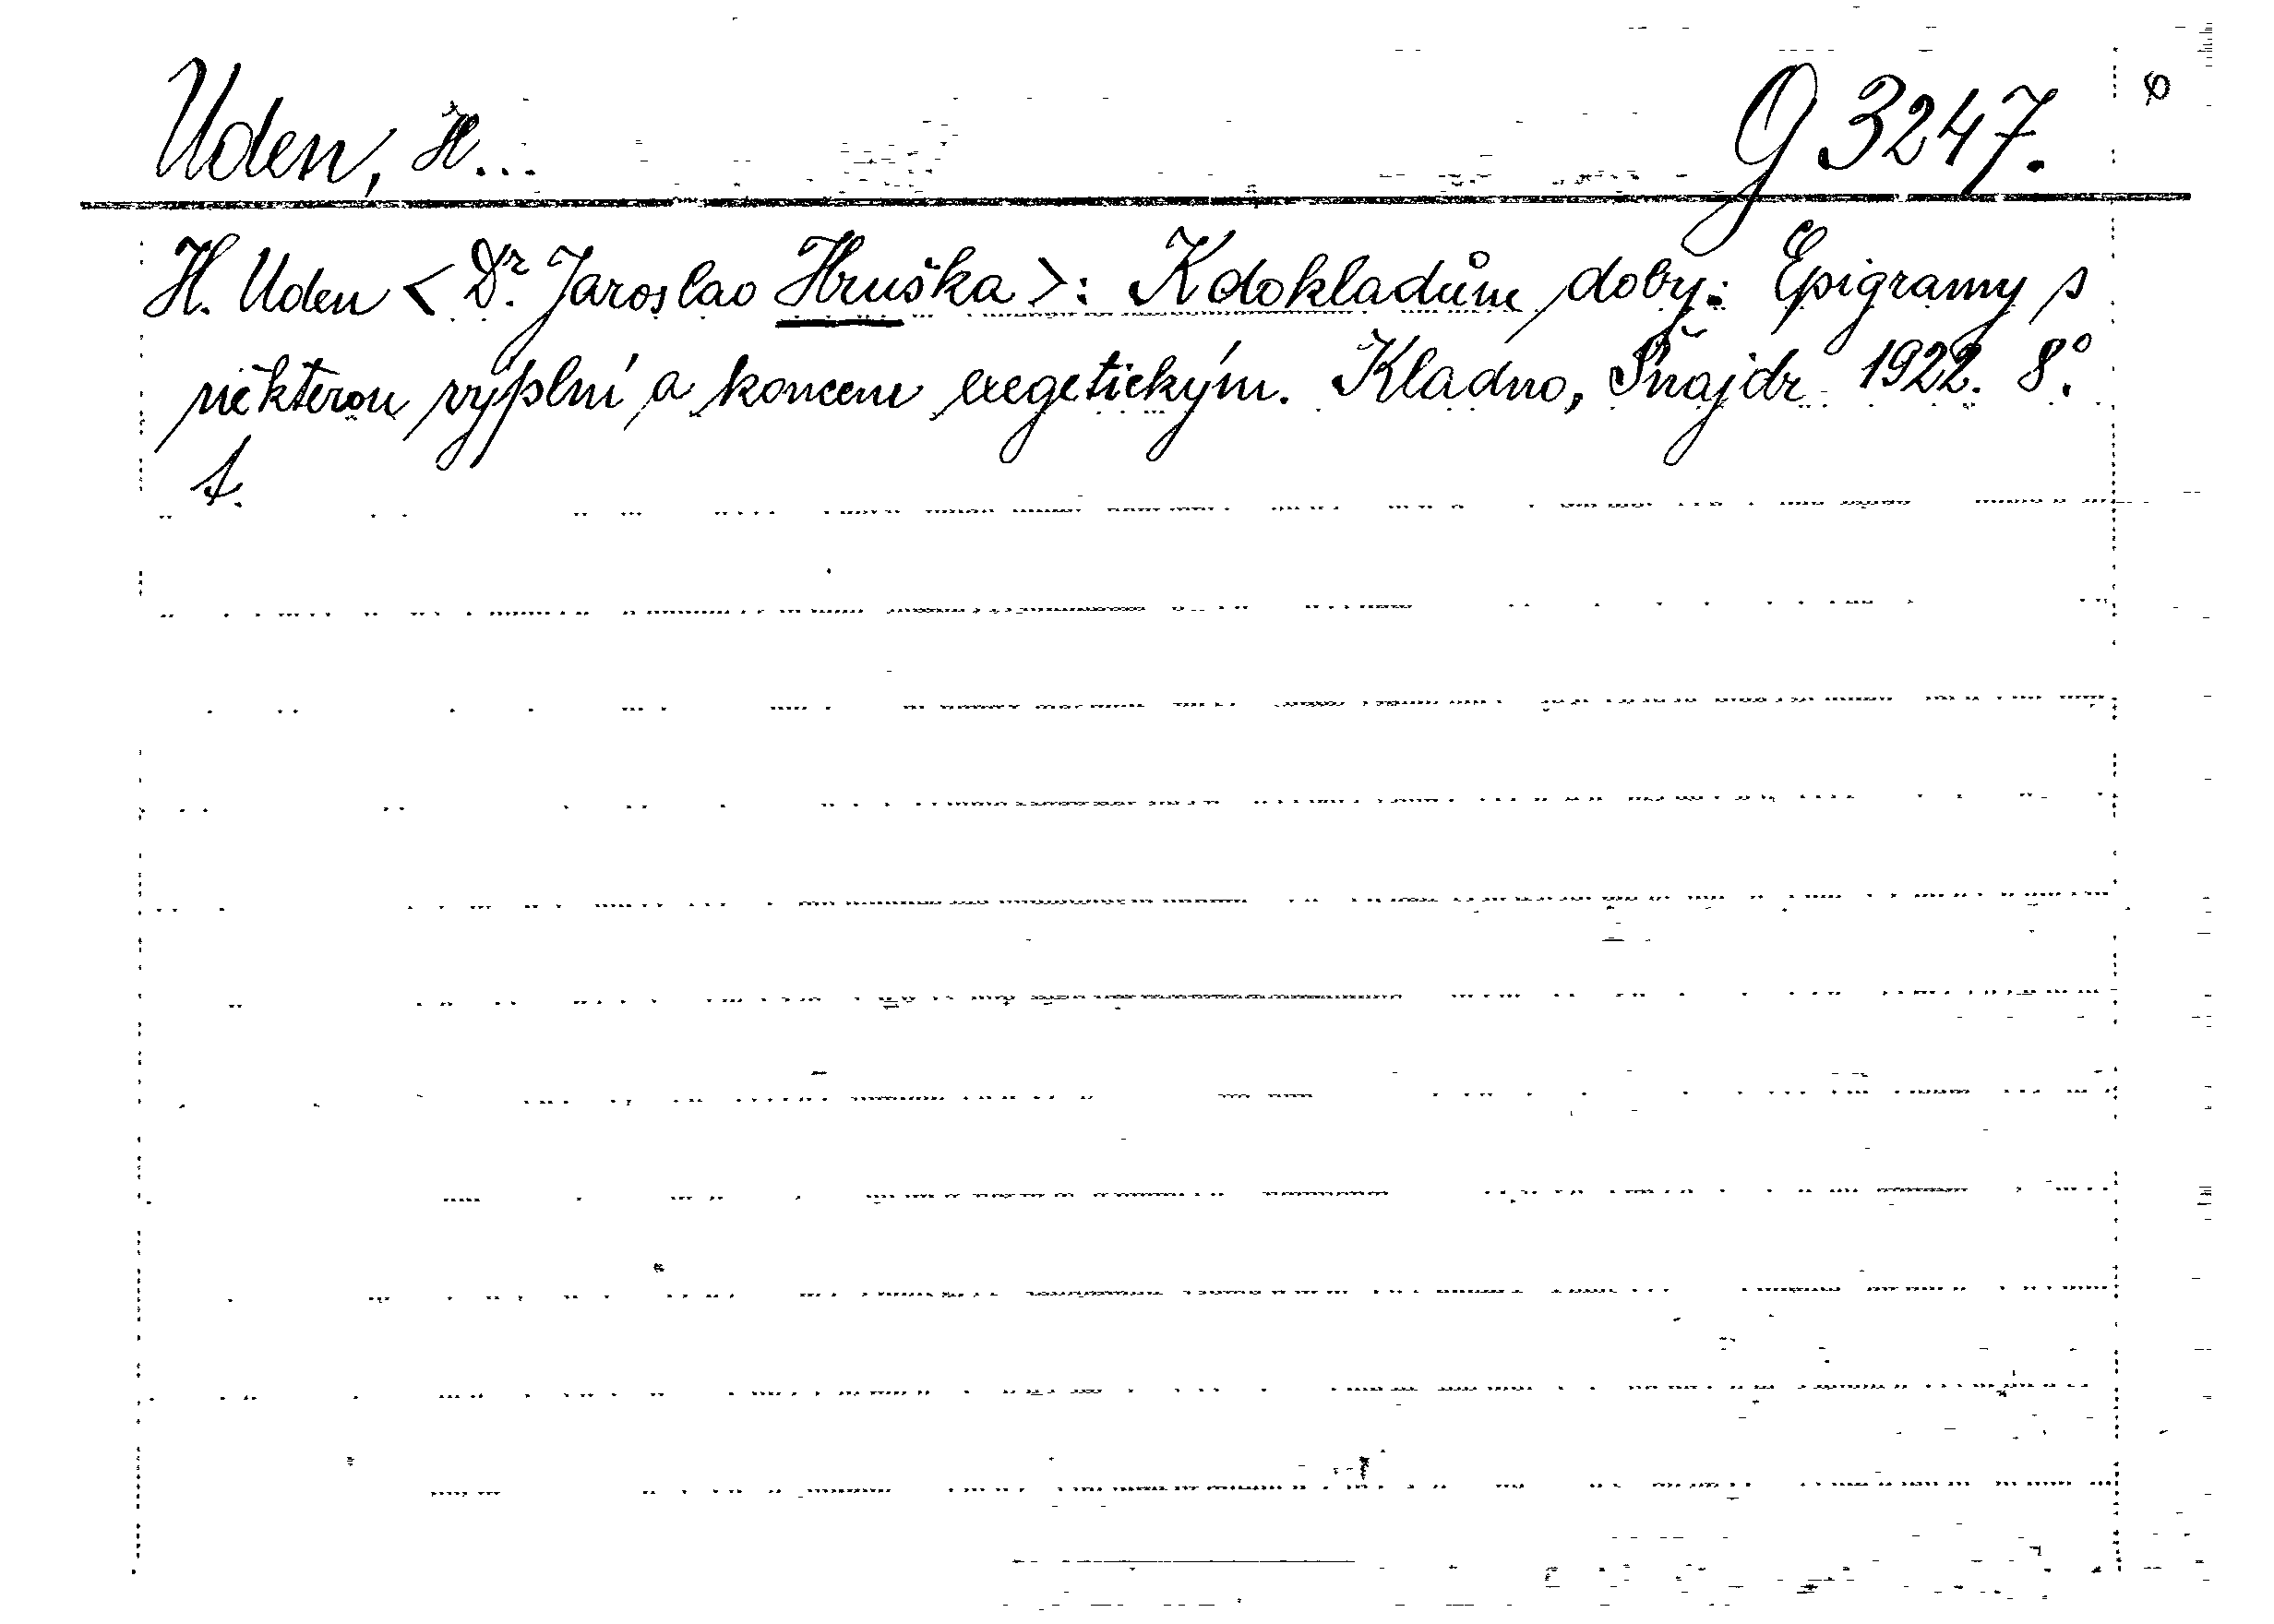 Uden, H... G 3247.
H. Uden < Dr. Jaroslav Hruška >: K dokladům doby: Epigramy s
některou výplní a koncem exegetickým. Kladno, Šnajdr 1922. 8°.